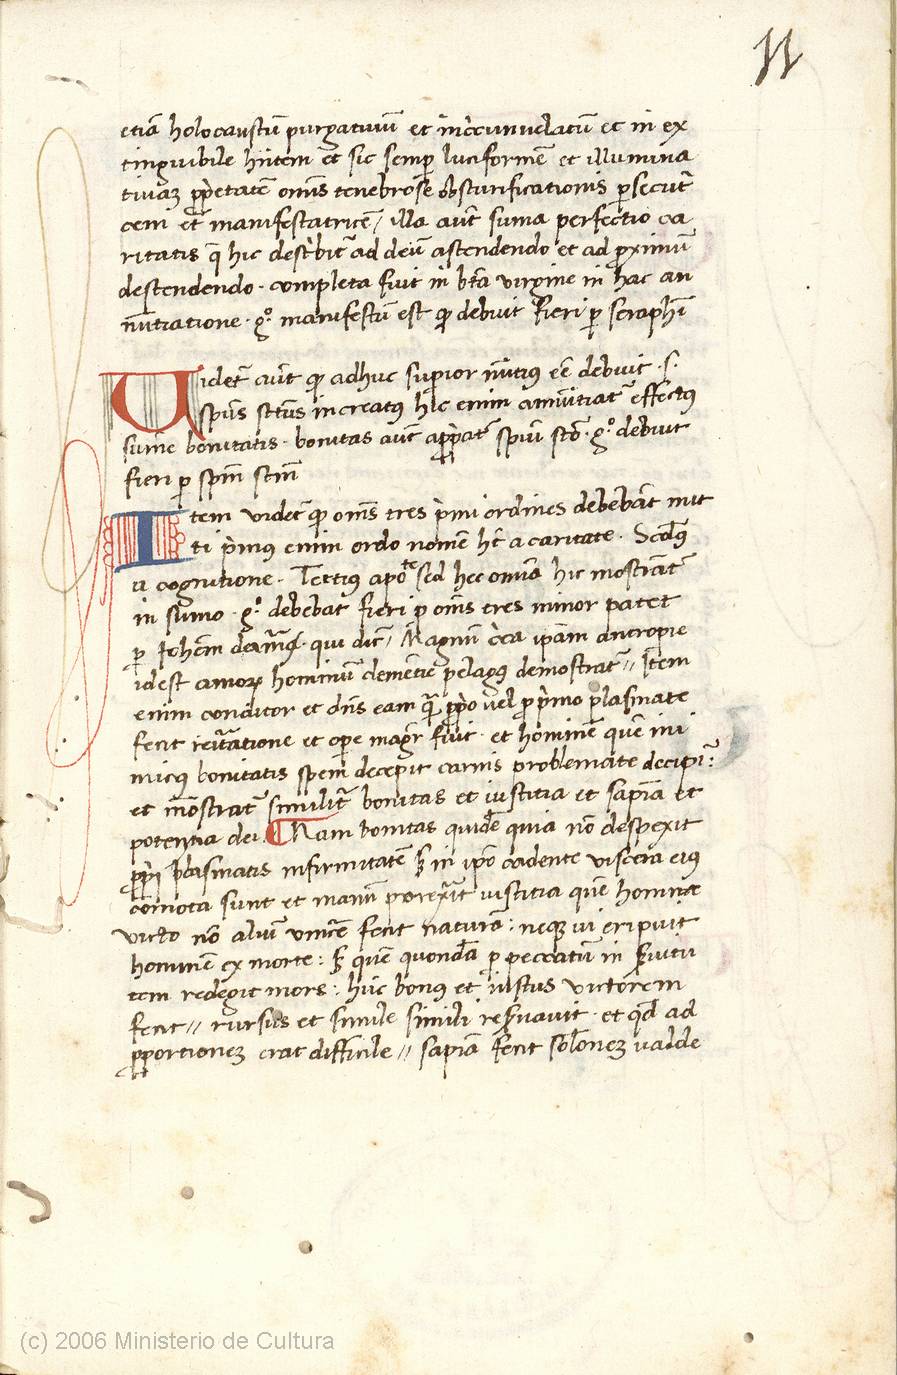 11
etiā holocaustū purgatiuū et īncircunuelatū et in ex
tinguibile hñtem et sic semp luciformē et illumina
tiuaȝ ꝓpetatē omīs tenebrose obscurificationis ꝑsecut̄
cem et manifestatricē / illa aut̄ suma perfectio ca
ritatis q̄ hic descⁱbit̄ ad deū ascendendo et ad ꝓximū
descendendo · completa fuit in btā virgine in hac an
nūtiatione · gᵒ manifestū est ꝙ debuit fieri ꝑ seraphī
Uidet̄ aut̄ ꝙ adhuc supior nūtiꝰ eē debuit · s·
spūs sctūs increatꝰ hic enim annūtiat̄ effectꝰ
sume bonitatis · bonitas aut̄ apꝓpat̄ spiū sctō · gᵒ debuit
fieri ꝑ spm̄ sctm̄
Item videt̄ ꝙ oms̄ tres pⁱmi ordines debebāt mit
ti pⁱmus enim ordo nomē ht̄ a caritate · Scdꝰ
a cognitione · Tertius apote sed hec omīa hic mostrāt̄
in sumo · gᵒ debebat fieri ꝑ oms̄ tres minor patet
ꝑ Johēm qui dic̄ / Magnū cⁱca ipam antropie
idest amoꝝ hominū clementie pelagꝰ demostrat̄ // Item
enim conditor et dn̄s eam ꝓpⁱo vel ꝓ pⁱmo plasmate
fecit et ope magr̄ fuit · et hominē quē ini
micꝰ bonitatis spem̄ decepit carnis problemate decipi :
et mōstrat̄ similit̄ bonitas et iustitia et sapīa et
potentia dei Nam bonitas quidē quia nō despexit
ꝓpⁱ plasmatis infirmitatē sꝫ in ipō cadente viscera eiꝰ
cōmota sunt et manū porexit iustitia quē homine
victo nō aliū vincē fecit natura : neqꝫ vi eripuit
hominē ex morte : sꝫ quē quondā ꝑ peccatū in ẜuitu
tem redegit mors : hūc bonꝰ et iustus victorem
fecit // rursus et simile simili reẜuauit · et qd̄ ad
ꝓportionem erat difficile // sapīa fecit solonem valde
(c) 2006 Ministerio de Cultura